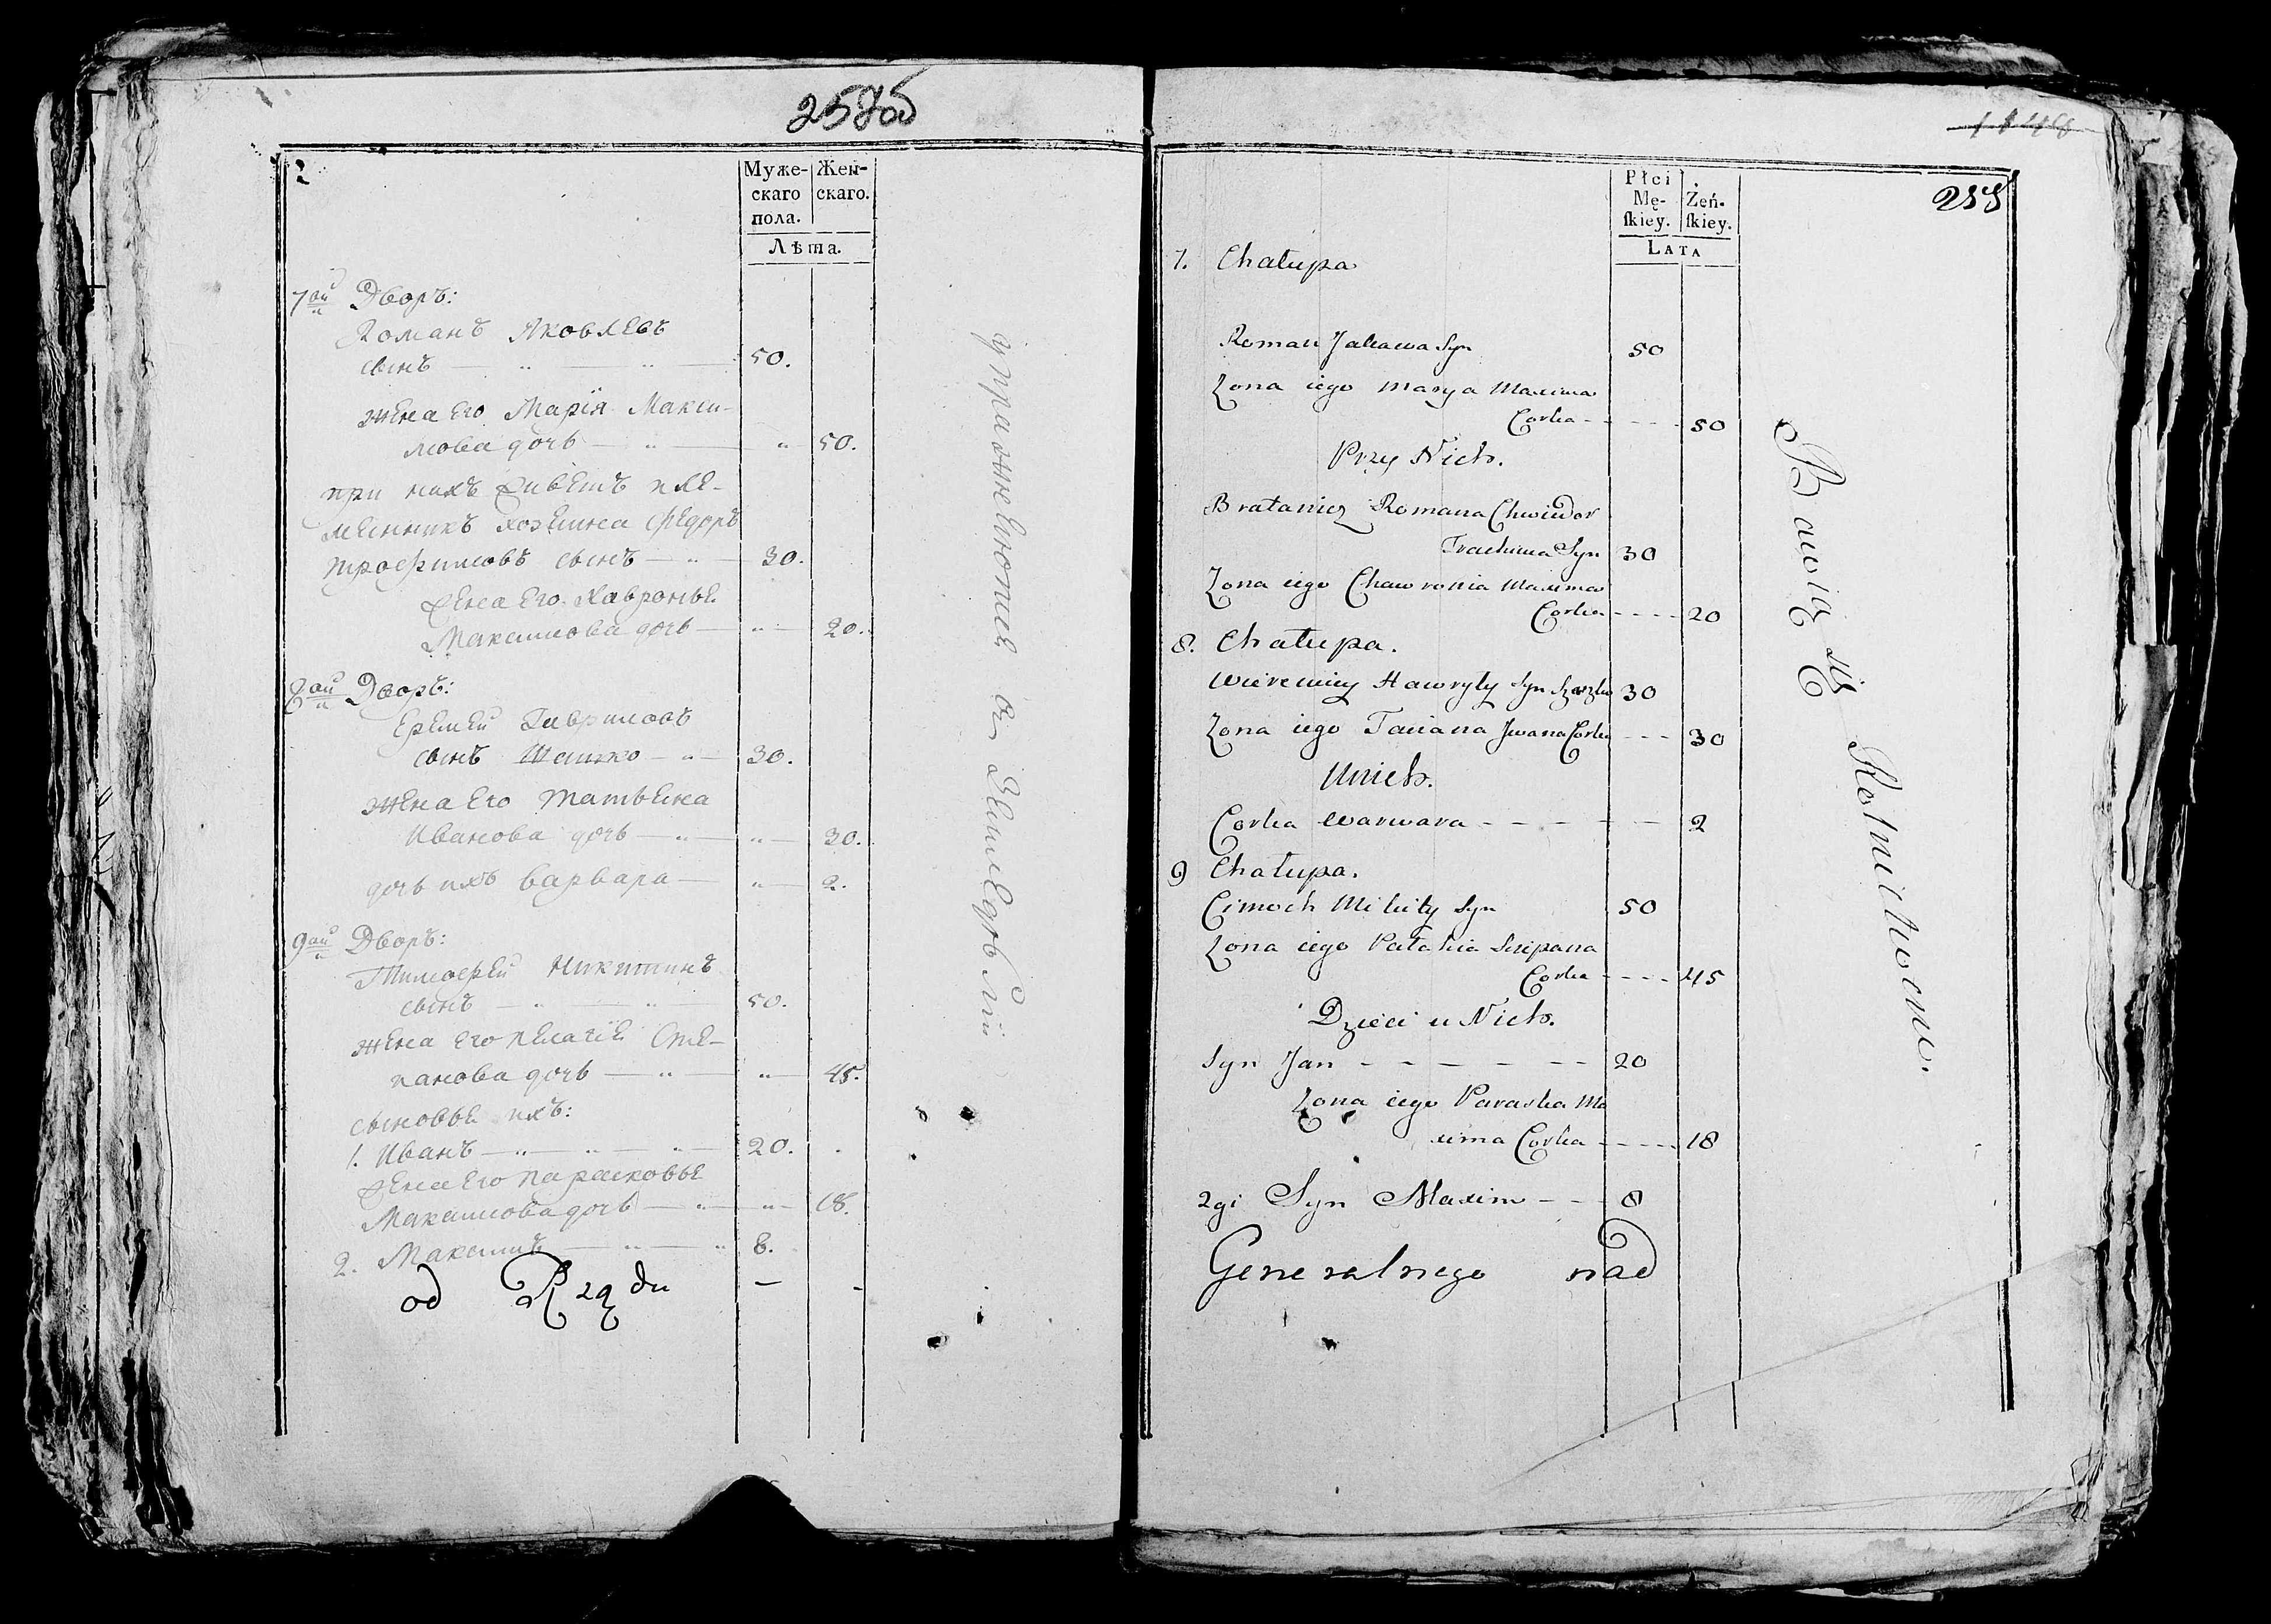 257об
2
Муже-
скаго
пола.
Жен-
скаго.
Лѣта.
7ой Дворъ:
Романъ Яковлевъ
сынъ — „ — „ — 50.
жена Его Марїя Макси-
мова дочь — „ — „ 50.
при нихъ живетъ пле-
менникъ хозяина Федоръ
трофимовъ сынъ — „ — 30.
жена Его Хавронья
Максимова дочь — „ — 20.
8ой Дворъ:
Еремей Гавриловъ
сынъ Шашко — „ — 30.
жена Его татьяна
Иванова дочь — „ — „ — 30.
дочь ихъ варвара — „ — 2.
9ой Дворъ:
Тимофей Никитинъ
сынъ — „ — „ — 50.
жена Его пелагїя Сте-
панова дочь — „ — „ — 45.
сыновья ихъ:
1. Иванъ — „ — „ — „ — 20.
жена Его парасковья
Максимова дочь — „ — „ — 18.
2. Максимъ — „ — „ 8.
od Rządu — -
упражняются въ Земледѣліи
1148
255
Płci
Mę-
ſkiey.
Żeń-
ſkiey.
LATA
7. Chałupa
Roman Jakawa Syn 50
Zona iego Marya Maxima
Corka - - - - 50
Przy Nich.
Bratanicz Romana Chwiedor
Trachima Syn 30
Zona iego Chawronia Maxima
Corka - - - - 20
8. Chałupa.
Wieremiey Hawryły Syn Szaszko 30
Zona iego Taciana Jwana Corka - - - 30
U nich.
Corka Warwara - - - - - 2
9 Chałupa.
Cimoch Mikity Syn 50
Zona iego Pałahia Sciepana
Corka - - - - 45
Dzieci u Nich.
Syn Jan - - - - - - 20
Zona iego Paraska Ma
xima Corka - - - - 18
2gi Syn Maxim - - 8
Generalnego nad
Bawią się Rolnictwem.